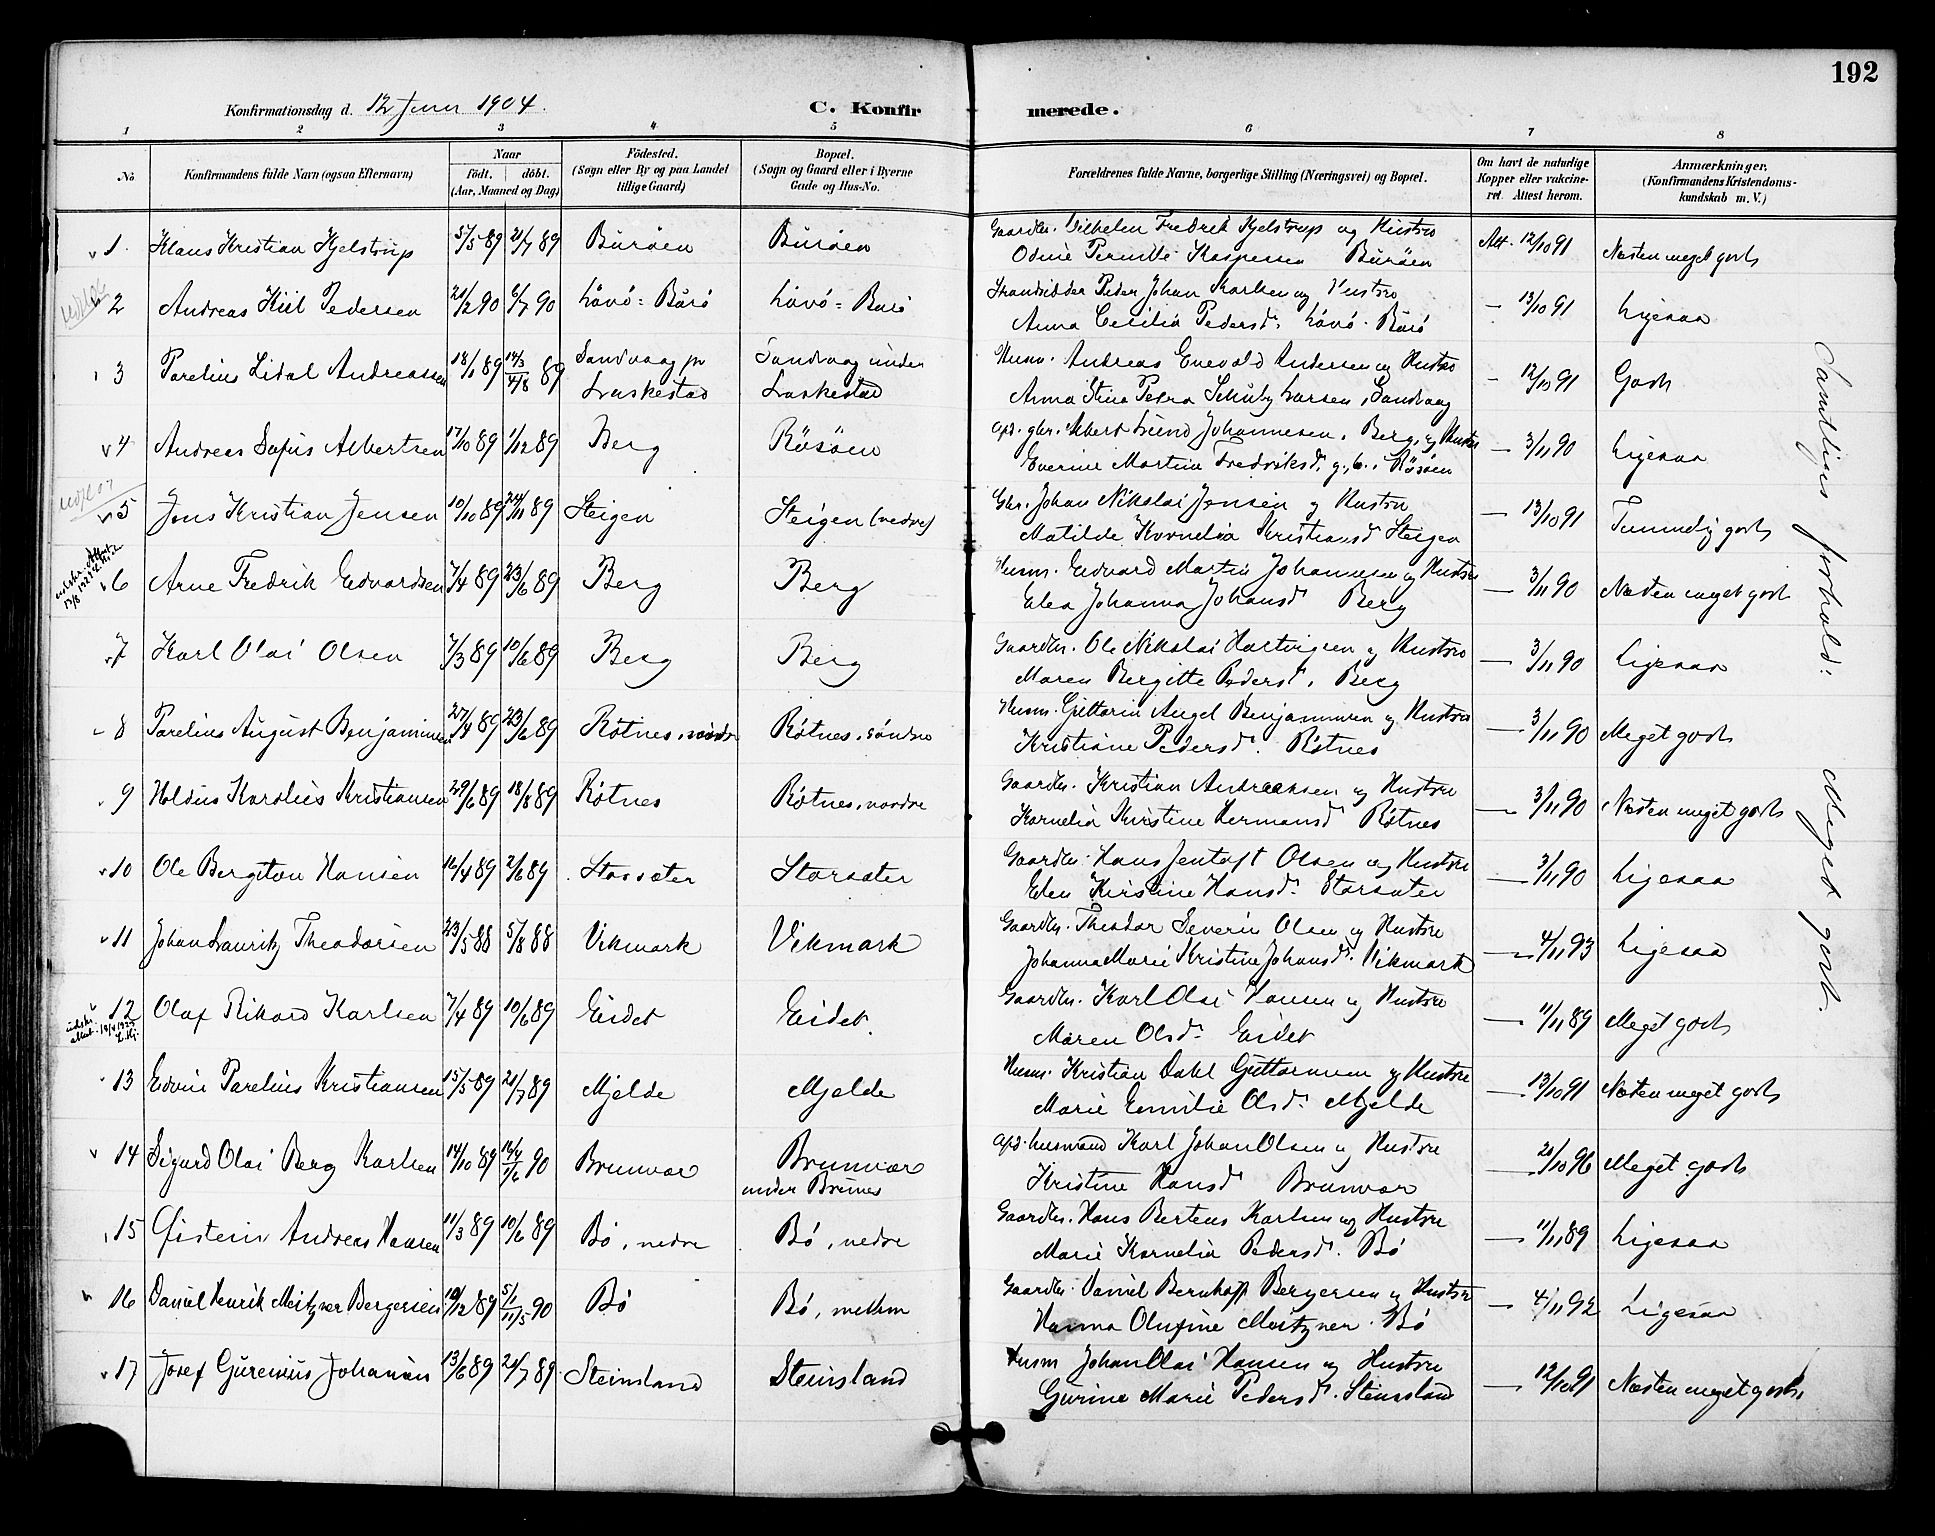 192
Konfirmationsdag d. 12 Juni 1904.
C. Konfirmerede.
1 2 3 4 5 6 7 8
No
Konfirmandens fulde Navn (ogsaa Efternavn)
Naar
födt. döbt.
(Aar, Maaned og Dag)
Födested.
(Sogn eller By og paa Landet
tillige Gaard)
Bopæl.
(Sogn og Gaard eller i Byerne
Gade og Hus-No.
Forældrenes fulde Navne, borgerlige Stilling (Næringsvei) og Bopæl.
Om havt de naturlige
Kopper eller vakcine-
ret. Attest herom.
Anmærkninger,
(Konfirmandens Kristendoms-
kundskab m. V.)
1 Klaus Kristian Kjelstrup 5/5 89 21/7 89 Burøen Burøen Gaardbr. Vilhelm Fredrik Kjelstrup og Hustro
Odine Pernille Kaspersen Burøen Att. 12/10 91 Næsten meget godt
2 Andreas Kiil Pedersen 21/2 90 6/7 90 Løvø = Burø Løvø = Burø Strandsidder Peder Johan Karlsen og Hustro
Anna Cecilia Pedersd. Løvø - Burø — 13/10 91 Ligesaa
3 Parelius Lidal Andreassen 18/1 89 14/3 4/8 89 Sandvaag pr Laskestad Sandvaag under Laskestad Husm. Andreas Enevold Andersen og Hustro
Anna Stina Petra Schuby Larsen, Sandvaag — 12/10 91 Godt
4 Andreas Sofus Albertsen 17/10 89 1/12 89 Berg Røsøen Opd. gbr. Albert Lund Johannesen, Berg, og Hustro
Everine Martina Fredriksd. Røsøen — 3/11 90 Ligesaa
5 Jens Kristian Jensen 10/10 89 24/11 89 Steigen Steigen (nedre) Gbr. Johan Nikolai Jensen og Hustro
Matilde Kornelia Kristiansd Steigen — 13/10 91 Temmelig godt
6 Arne Fredrik Edvardsen 7/4 89 23/6 89 Berg Berg Husm. Edvard Martin Johannesen og Hustro
Elea Johanna Johansd Berg — 3/11 90 Næsten meget godt
7 Karl Olai Olsen 7/3 89 10/6 89 Berg Berg Gaardbr. Ole Nikolai Hartvigsen og Hustro
Maren Bergitte Pedersd. Berg — 3/11 90 Ligesaa
8 Parelius August Benjaminsen 27/4 89 23/6 89 Røtnes, søndre Røtnes, søndre Husm. Guttorm Angel Benjaminsen og Hustro
Kristiane Pedersd. Røtnes — 3/11 90 Meget godt
9 Holdius Karolius Kristiansen 29/6 89 18/8 89 Røtnes Røtnes, nordre Gaardbr. Kristian Andreassen og Hustro
Kornelia Kirstine Hermansd Røtnes — 3/11 90 Næsten meget godt
10 Ole Bergiton Hansen 16/4 89 2/6 89 Storsæter Storsæter Gaardbr. Hans Jentoft Olsen og Hustro
Elen Kirstine Hansd. Storsæter — 3/11 90 Ligesaa
11 Johan Lauritz Theodorsen 23/5 88 5/8 88 Vikmark Vikmark Gaardbr. Theodor Severin Olsen og Hustro
Johanna Marie Kristine Johansd. Vikmark — 4/11 93 Ligesaa
12 Olaf Rikard Karlsen 7/4 89 10/6 89 Eidet Eidet. Gaardbr. Karl Olai Hansen og Hustro
Maren Olsd. Eidet — 11/11 89 Meget godt
13 Edvin Parelius Kristiansen 15/5 89 21/7 89 Mjelde Mjelde Husm. Kristian Dahl Guttormsen og Hustro
Marie Emilie Olsd. Mjelde — 13/10 91 Næsten meget godt
14 Sigurd Olai Berg Karlsen 14/10 89 14/4 1/6 90 Brunvær Brunvær under Brunes Opd. husmand Karl Johan Olsen og Hustro
Kristine Hansd Brunvær 21/10 96 Meget godt
15 Øistein Andreas Hansen 11/3 89 10/6 89 Bø, nedre Bø, nedre Gaardbr. Hans Bertens Karlsen og Hustro
Marie Kornelia Pedersd. Bø — 11/11 89 Ligesaa
16 Daniel Henrik Meitzner Bergersen 12/12 89 5/1 11/5 90 Bø Bø, mellem Gaardbr. Daniel Bernhoft Bergersen og Hustro
Hanna Olufine Meitzner. Bø — 4/11 92 Ligesaa
17 Josef Gurenius Johansen 13/6 89 21/7 89 Steinsland Steinsland Husm Johan Olai Hansen og Hustro
Gurine Marie Pedersd. Steinsland — 12/10 91 Næsten meget godt
Samtliges forhold: Meget godt.